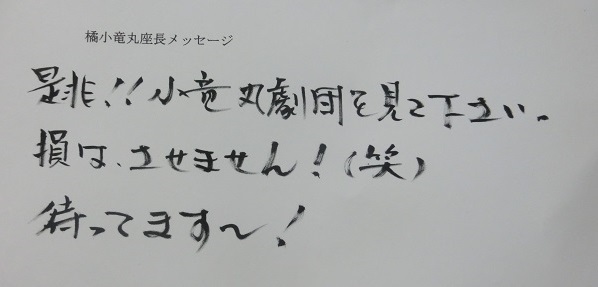 橘小竜丸座長メッセージ
是非!!小竜丸劇団を見て下さい。
損は、させません!(笑)
待ってます〜!